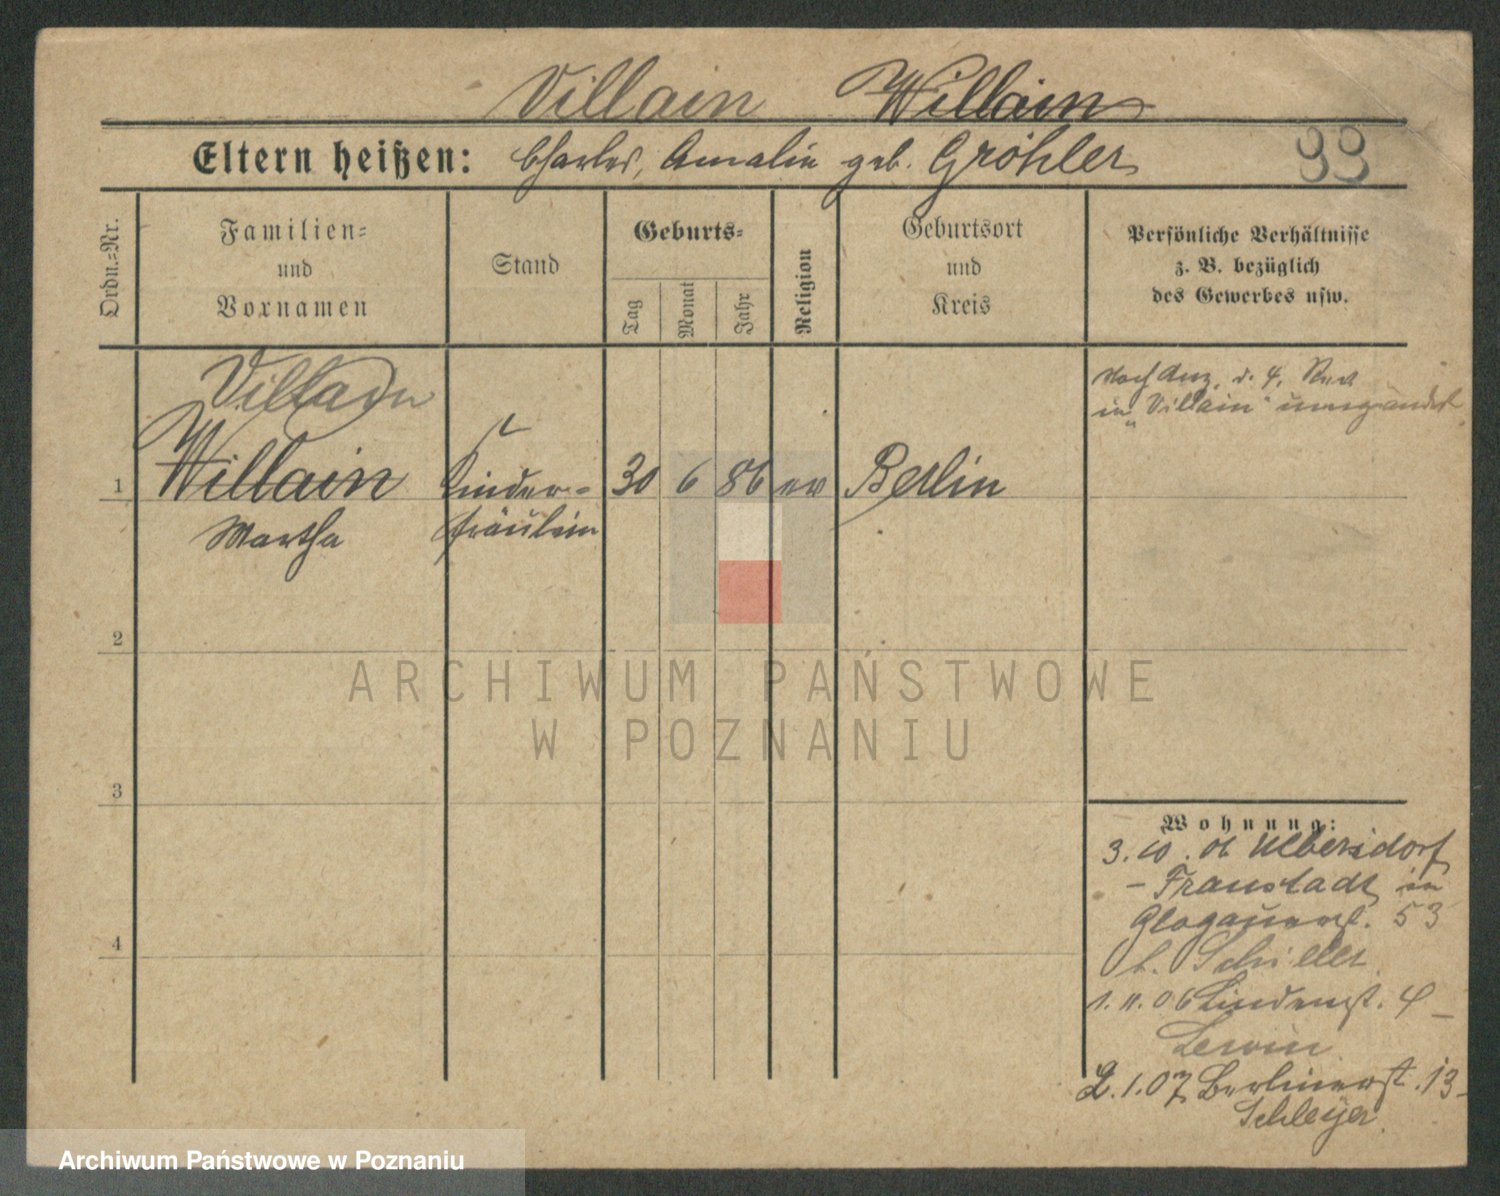 Villain Willain
Eltern heißen: Charles, Amalie geb. Gröhler
99
Ordn.-Nr.
Familien-
und
Vornamen
Stand
Geburts-
Tag
Monat
Jahr
Religion
Geburtsort
und
Kreis
Persönliche Verhältnisse
z. B. bezüglich
des Gewerbes usw.
Villain
Nach Anz. d. 4. Rev
in "Villain" umgeändert
1 Willain Kinder- 30 6 86 ev Berlin
Martha fräulein
2
3
4
Wohnung:
3. 10. 06 Ulbersdorf
- Fraustadt in
Glogauerst. 53
b. Schiller
1. 11. 06 Lindenst. 4 -
Lewin
2. 1. 07 Berlinerst. 13 -
Schleyer.
ARCHIWUM PAŃSTWOWE
W POZNANIU
Archiwum Państwowe w Poznaniu